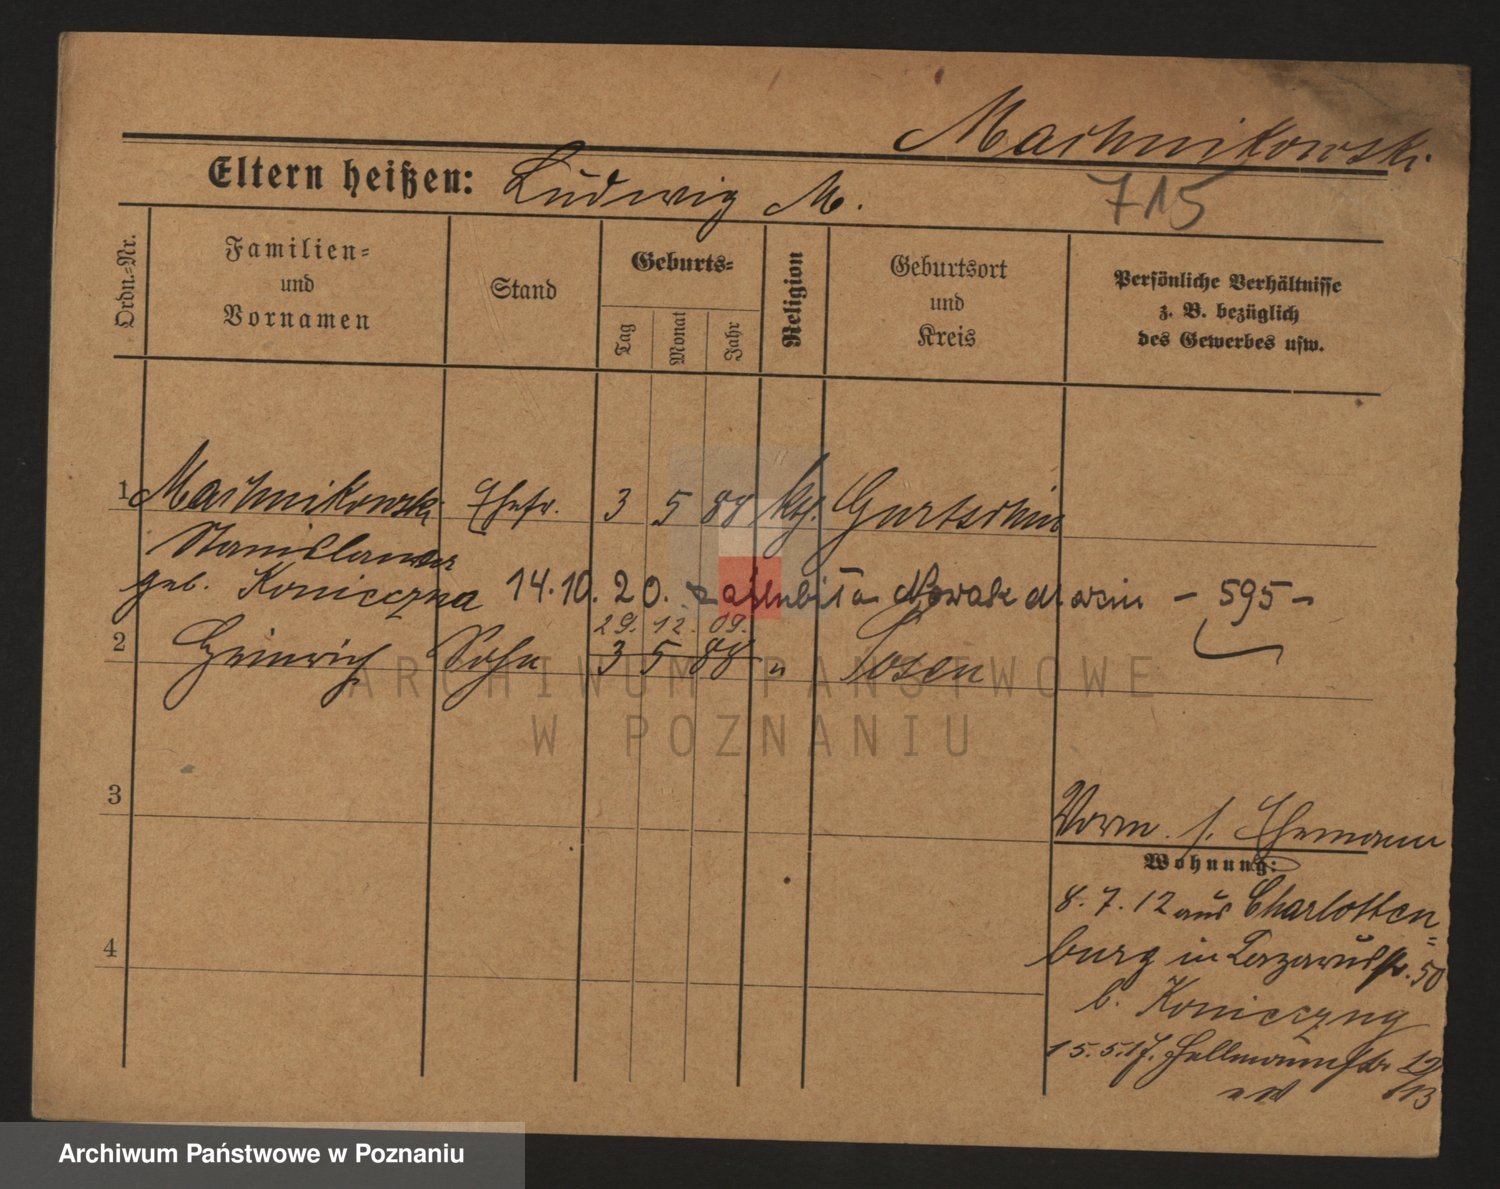 Machnikowski
Eltern heißen: Ludwig M.
715
Ordn.-Nr.
Familien-
und
Vornamen
Stand
Geburts-
Tag
Monat
Jahr
Religion
Geburtsort
und
Kreis
Persönliche Verhältnisse
z. B. bezüglich
des Gewerbes usw.
1 Machnikowski Ehefr. 3 5 88 kth. Gurtschin
Stanislawa
geb. Konieczna 14.10.20. zaślubiła Nowak Marcin - 595 -
29. 12. 09.
2 Heinrich Sohn 3 5 88 " Posen
3
4
Vorm. s. Ehemann
Wohnung:
8.7.12 aus Charlotten=
burg in Lazarusstr. 50
b. Konieczny
15.5.17. Hellmannstr. 12/13
ARCHIWUM PAŃSTWOWE
W POZNANIU
Archiwum Państwowe w Poznaniu